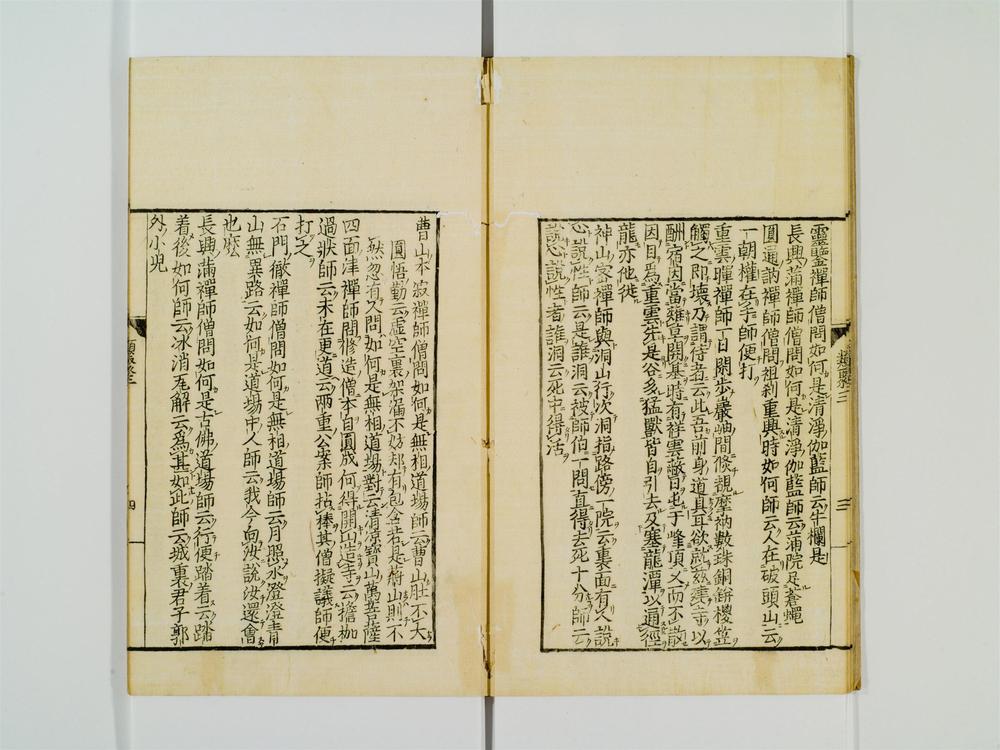 靈鑒禪師僧問如何是清淨伽藍師云牛欄是
長興蒲禪師僧問如何是清淨伽藍師云蒲院足蒼蠅
圓通訥禪師僧問祖刹重興時如何師云人在破頭山云
一朝權在手師便打
重雲暉禪師一日閑步巖岫間倐覩摩衲數珠銅缾椶笠
觸之即壞乃謂侍者云此吾前身道具耳欲就茲建寺以
酬宿因當薙草開基時有祥雲蔽日屯于峰頂久而不散
因目爲重雲先是谷多猛獸皆自引去及塞龍潭以通徑
龍亦他徙
神山密禪師與洞山行次洞指路傍一院云裏面有人説
心説性師云是誰洞云被師伯一問直得去死十分師云
説心説性者誰洞云死中得活
類聚三
三
曹山本寂禪師僧問如何是無相道場師云曹山肚不大
圓悟勤云虛空裏架滿不妨却有包含若是蔣山則不
然忽有人問如何是無相道場對云清凉寶山萬菩薩
四面津禪師問修造僧本自圓成何得開山造寺云擔枷
過狀師云未在更道云兩重公案師拈棒其僧擬議師便
打之
石門徹禪師僧問如何是無相道場師云月照水澄澄青
山無異路云如何是道場中人師云我今向汝説汝還會
也麽
長興蒲禪師僧問如何是古佛道場師云行便踏着云踏
着後如何師云冰消瓦解云爲甚如此師云城裏君子郭
外小兒
類聚三
四